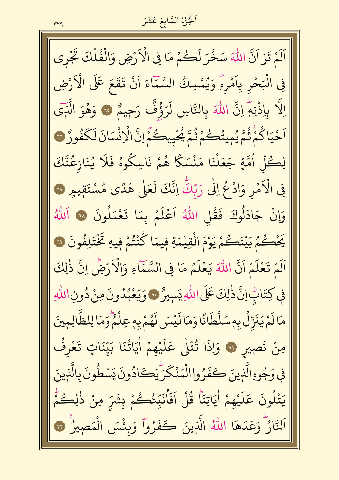 اَلْجُزْءُ السَّابِعَ عَشَرَ
اَلَمْ تَرَ اَنَّ اللّٰهَ سَخَّرَ لَكُمْ مَا فِى الْاَرْضِ وَالْفُلْكَ تَجْرٖى
فِى الْبَحْرِ بِاَمْرِهٖ وَيُمْسِكُ السَّمَٓاءَ اَنْ تَقَعَ عَلَى الْاَرْضِ
اِلَّا بِاِذْنِهٖ اِنَّ اللّٰهَ بِالنَّاسِ لَرَؤُفٌ رَحٖيمٌ ﴿٦٥﴾ وَهُوَ الَّذٖٓى
اَحْيَاكُمْ ثُمَّ يُمٖيتُكُمْ ثُمَّ يُحْيٖيكُمْ اِنَّ الْاِنْسَانَ لَكَفُورٌ ﴿٦٦﴾
لِكُلِّ اُمَّةٍ جَعَلْنَا مَنْسَكًا هُمْ نَاسِكُوهُ فَلَا يُنَازِعُنَّكَ
فِى الْاَمْرِ وَادْعُ اِلٰى رَبِّكَ اِنَّكَ لَعَلٰى هُدًى مُسْتَقٖيمٍ ﴿٦٧﴾
وَاِنْ جَادَلُوكَ فَقُلِ اللّٰهُ اَعْلَمُ بِمَا تَعْمَلُونَ ﴿٦٨﴾ اَللّٰهُ
يَحْكُمُ بَيْنَكُمْ يَوْمَ الْقِيٰمَةِ فٖيمَا كُنْتُمْ فٖيهِ تَخْتَلِفُونَ ﴿٦٩﴾
اَلَمْ تَعْلَمْ اَنَّ اللّٰهَ يَعْلَمُ مَا فِى السَّمَٓاءِ وَالْاَرْضِ اِنَّ ذٰلِكَ
فٖى كِتَابٍ اِنَّ ذٰلِكَ عَلَى اللّٰهِ يَسٖيرٌ ﴿٧٠﴾ وَيَعْبُدُونَ مِنْ دُونِ اللّٰهِ
مَا لَمْ يُنَزِّلْ بِهٖ سُلْطَانًا وَمَا لَيْسَ لَهُمْ بِهٖ عِلْمٌ وَمَا لِلظَّالِمٖينَ
مِنْ نَصٖيرٍ ﴿٧١﴾ وَاِذَا تُتْلٰى عَلَيْهِمْ اٰيَاتُنَا بَيِّنَاتٍ تَعْرِفُ
فٖى وُجُوهِ الَّذٖينَ كَفَرُوا الْمُنْكَرَ يَكَادُونَ يَسْطُونَ بِالَّذٖينَ
يَتْلُونَ عَلَيْهِمْ اٰيَاتِنَا قُلْ اَفَاُنَبِّئُكُمْ بِشَرٍّ مِنْ ذٰلِكُمْ
اَلنَّارُ وَعَدَهَا اللّٰهُ الَّذٖينَ كَفَرُوا وَبِئْسَ الْمَصٖيرُ ﴿٧٢﴾